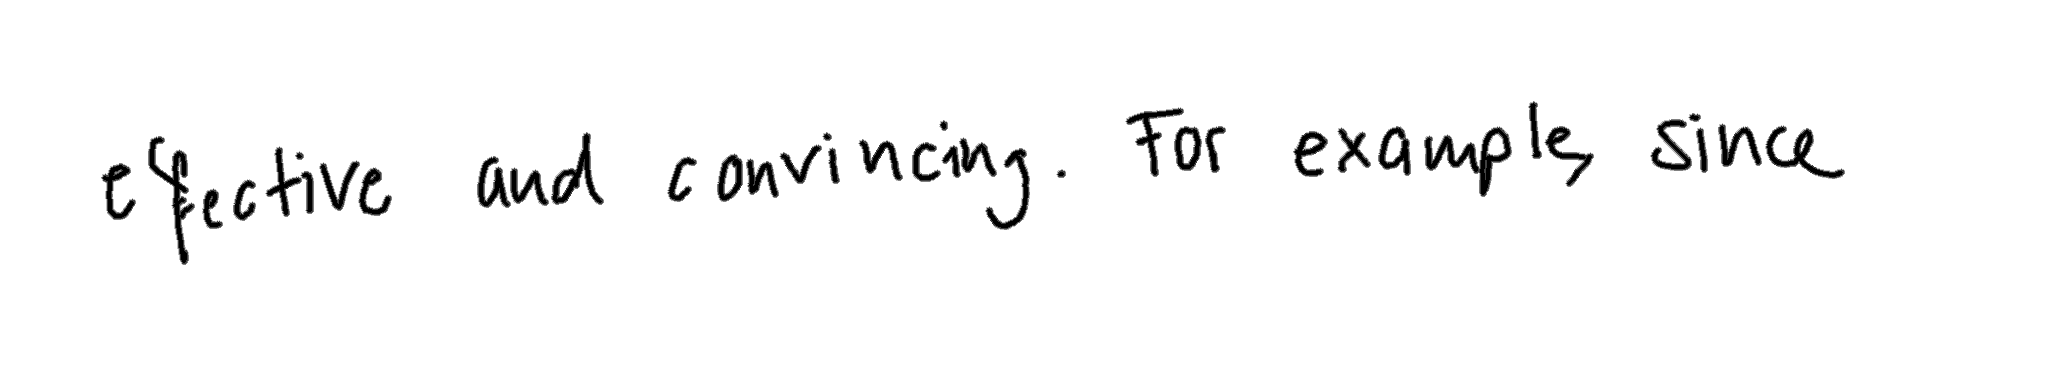 effective and convincing. For example, since